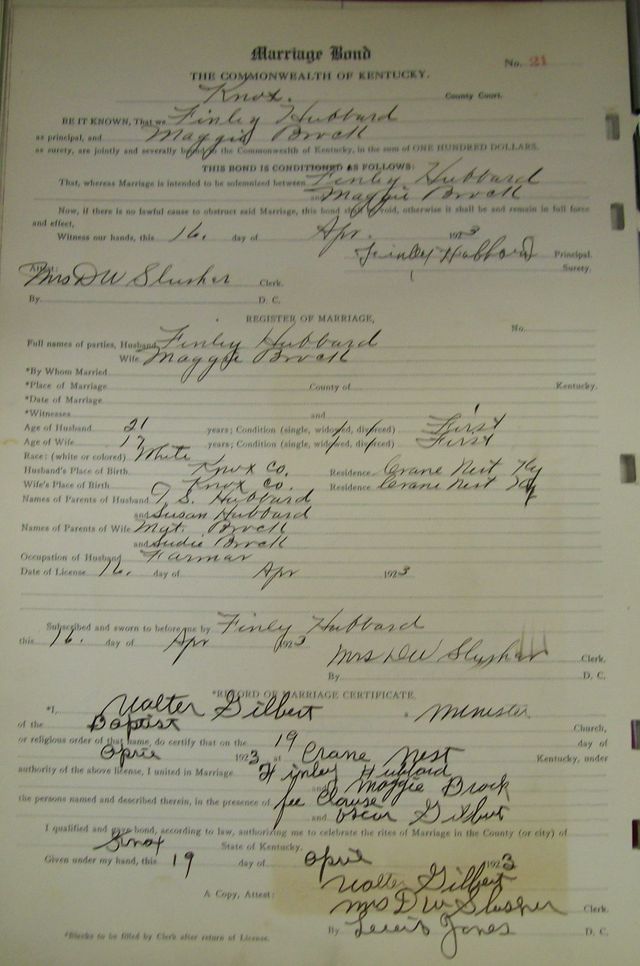 Marriage Bond
No. 21
THE COMMONWEALTH OF KENTUCKY.
Knox. County Court.
BE IT KNOWN, That we Finley Hubbard
as principal, and Maggie Brock
as surety, are jointly and severally bound to the Commonwealth of Kentucky, in the sum of ONE HUNDRED DOLLARS.
THIS BOND IS CONDITIONED AS FOLLOWS:
That, whereas Marriage is intended to be solemnized between Finley Hubbard
and Maggie Brock
Now, if there is no lawful cause to obstruct said Marriage, this bond shall be void, otherwise it shall be and remain in full force
and effect,
Witness our hands, this 16. day of Apr. 1923
Finley Hubbard Principal.
Surety.
Attest:
Mrs DW Slusher Clerk.
By D. C.
REGISTER OF MARRIAGE,
No.
Full names of parties, Husband Finley Hubbard
Wife Maggie Brock
*By Whom Married
*Place of Marriage County of Kentucky.
*Date of Marriage
*Witnesses and
Age of Husband 21 years; Condition (single, widowed, divorced) First
Age of Wife 17 years; Condition (single, widowed, divorced) First
Race: (white or colored) White
Husband's Place of Birth Knox Co. Residence Crane Nest Ky
Wife's Place of Birth Knox Co. Residence Crane Nest Ky
Names of Parents of Husband S. Hubbard
and Susan Hubbard
Names of Parents of Wife Mgt. Brock
and Sudie Brock
Occupation of Husband Farmar
Date of License 16. day of Apr 1923
Subscribed and sworn to before me by Finley Hubbard
this 16. day of Apr 1923
Mrs DW Slusher Clerk.
By D. C.
*RECORD OF MARRIAGE CERTIFICATE.
*I, Walter Gilbert a minister
of the Baptist Church,
or religious order of that name, do certify that on the 19 day of
Aprie 1923 at Crane Nest Kentucky, under
authority of the above license, I united in Marriage Finley Hubbard
and Maggie Brock
the persons named and described therein, in the presence of
and Oscar Gilbert
I qualified and gave bond, according to law, authorizing me to celebrate the rites of Marriage in the County (or city) of
Knox State of Kentucky.
Given under my hand, this 19 day of Aprie 1923
Walter Gilbert
A Copy, Attest: Mrs DW Slusher Clerk.
By Lewis Jones D. C.
*Blanks to be filled by Clerk after return of License.